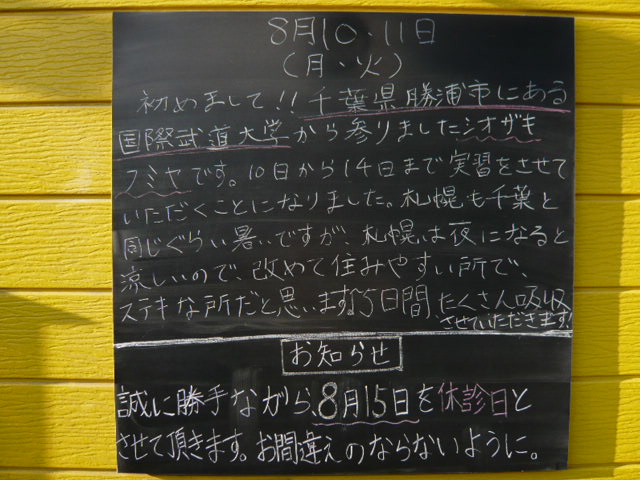 8月10・11日
(月・火)
初めまして!!千葉県勝浦市にある
国際武道大学から参りましたシオザキ
フミヤです。10日から14日まで実習をさせて
いただくことになりました。札幌も千葉と
同じぐらい暑いですが、札幌は夜になると
涼しいので、改めて住みやすい所で、
ステキな所だと思います。5日間、たくさん吸収
させていただきます!
お知らせ
誠に勝手ながら、8月15日を休診日と
させて頂きます。お間違えのならないように。